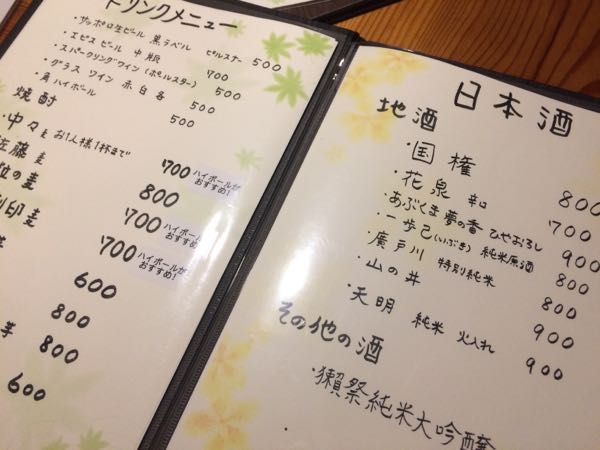 ドリンクメニュー
・サッポロ生ビール 黒ラベル ピルスナー 500
・エビスビール 中瓶 700
・スパークリングワイン(ポールスター) 500
・グラスワイン 赤白各 500
・角ハイボール 500
焼酎
・中々 麦 お1人様1杯まで 700 ハイボールがおすすめ!
佐藤 麦 800
の麦 700 ハイボールがおすすめ!
印 麦 700 ハイボールがおすすめ!
600
800
芋 800
600
日本酒
地酒
・国権 800
・花泉 辛口 700
・あぶくま 夢の香 ひやおろし 900
・一歩己(いぶき) 純米原酒 800
・廣戸川 特別純米 800
・山の井 900
・天明 純米 火入れ 900
その他の酒
・獺祭純米大吟醸